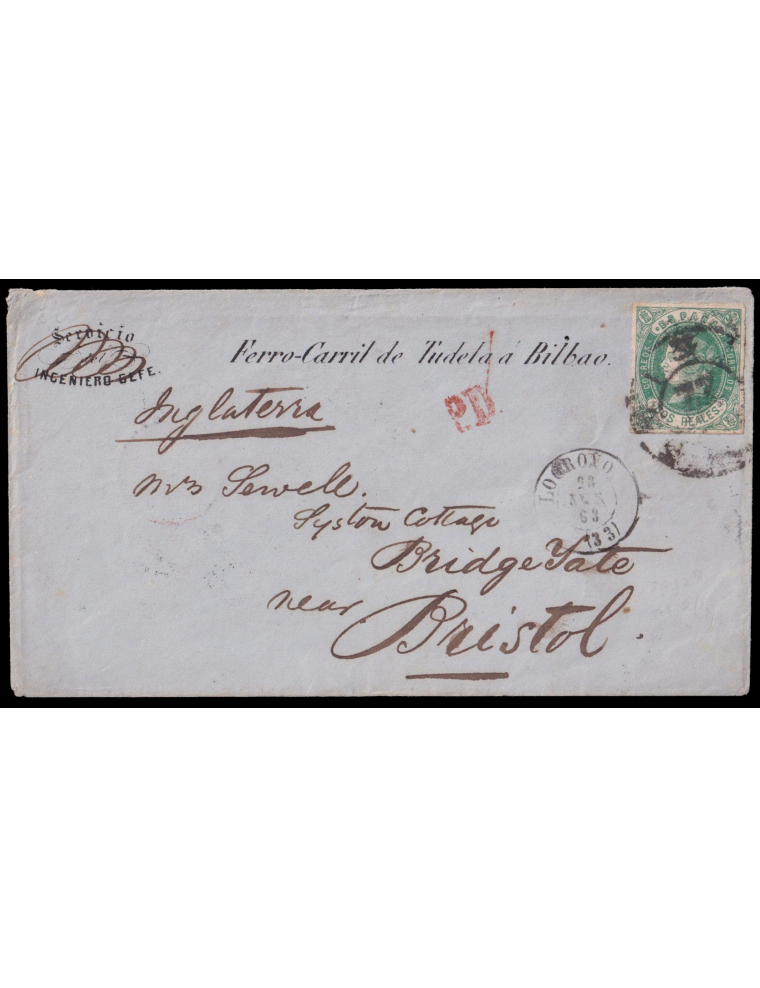 Servicio
INGENIERO GEFE.
Ferro-Carril de Tudela á Bilbao.
ESPAÑA
CORREOS
DOS REALES
P.D
Inglaterra
LOGROÑO
28
63
(33)
Mrs Sewell.
Syston Cottage
Bridge Yate
near
Bristol.